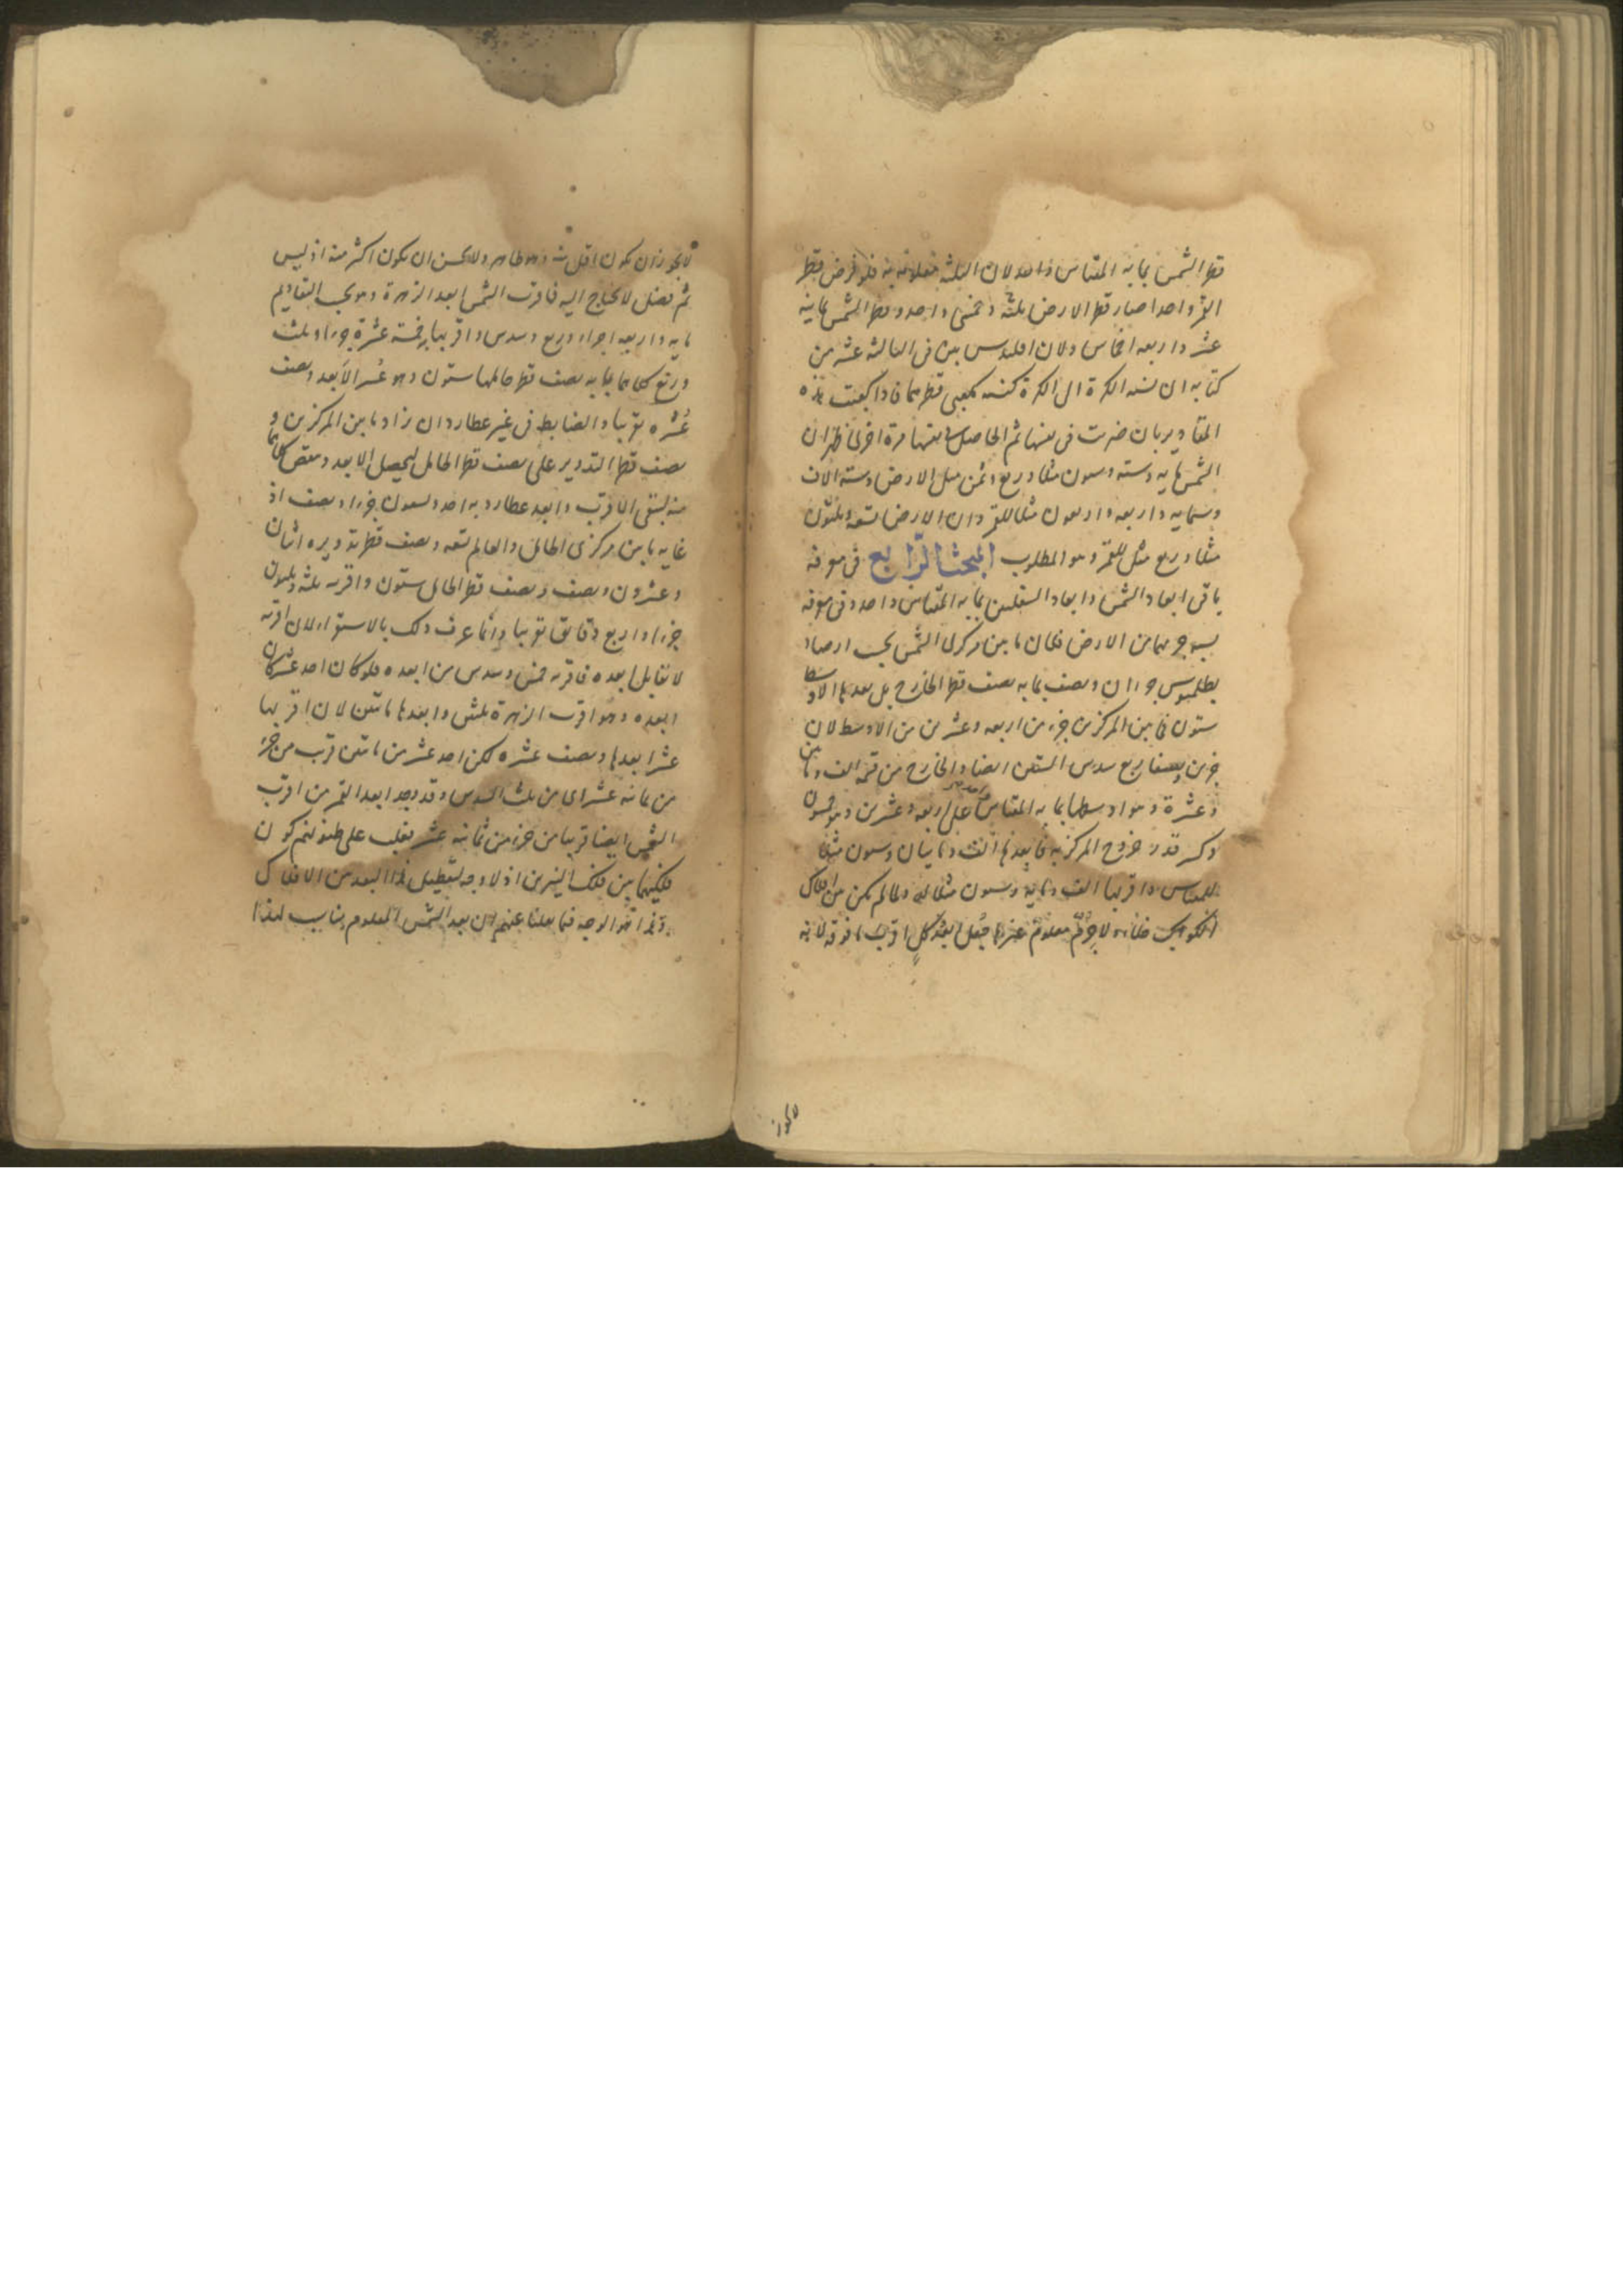 قطر الشمس بما به المقياس واحد لان الثلثة معلومة به فلو فرض قطر
القمر واحدا صار قطر الارض ثلثة وخمسى واحد وقطر الشمس ثمانية
عشر واربعة اخماس ولان اقليدس بين فى الثالثة عشر من
كتابه ان نسبة الكرة الى الكرة كنسبة مكعبى قطريهما فاذا كعبت هذه
المقادير بان ضربت فى نفسها ثم الحاصل فى نفسها مرة اخرى ظهر ان
الشمس مايه وسته وستون مثلا وربع وثمن مثل الارض وستة الاف
وستمايه واربعه واربعون مثلا للقمر وان الارض تسعة وثلثون
مثلا وربع مثل للقمر وهو المطلوب المبحث الرابع فى معرفة
باقى ابعاد الشمس وابعاد السفليين بما به المقياس واحد وفى معرفة
نسبة جرميهما من الارض فلان ما بين مركزى الشمس بحسب ارصاد
بطلميوس جزءان ونصف بما به نصف قطر الخارج بل بعدها الاوسط
ستون فما بين المركزين جزء من اربعه وعشرين من الاوسط لان
جزئين ونصفا ربع سدس الستين ايضا والخارج من قسمة الف ومأتين
وعشرة وهو اوسطها بما به المقياس واحد على اربعه وعشرين وهو خمسون
وكسر قدر خروج المركز به فابعدها الف ومأتيان وستون مثلا
للمقياس واقربها الف ومايه وستون مثلا له ولما لم يكن بين افلاك
الكواكب خلأ ولا جرم معلوم غيرها جعل ابعد كل اقرب ما فوقه لانه
لا يجوز
لا يجوز ان يكون اقل منه وهو ظاهر ولا يحسن ان يكون اكثر منه اذ ليس
ثم فضل لا يحتاج اليه فاقرب الشمس ابعد الزهرة وهو بحسب التقاويم
مايه واربعه اجزاء وربع وسدس واقربها خمسة عشرة جزءا وثلث
وربع كلاهما بما به نصف قطر حاملها ستون وهو عُشر الأبعد ونصف
عُشره تقريبا والضابط فى غير عطارد ان زاد ما بين المركزين و
نصف قطر التدوير على نصف قطر الحامل ليحصل الابعد وينقص كلاهما
منه ليبقى الاقرب وابعد عطارد به احد وتسعون جزءا ونصف اذ
غاية ما بين مركزى الحامل والعالم تسعه ونصف قطر تدويره اثنان
وعشرون ونصف ونصف قطر الحامل ستون واقربه ثلثه وثلثون
جزءا واربع دقايق تقريبا وانما عرف ذلك بالاستقراء لان اقربه
لا يقابل ابعده فاقربه خمس وسدس من ابعده فلو كان احد عشر كان
ابعده وهو اقرب الزهرة ثلثين وابعدها مأتين لان اقربها
عشر ابعدها ونصف عشره لكن احد عشر من مأتين قرب من جزء
من ثمانية عشر اى من ثلث السدس وقد وجد ابعد القمر من اقرب
الشمس ايضا قريبا من جزء من ثمانية عشر فغلب على ظنونهم كون
فلكيهما بين فلك النيرين اذ لا وجه لتعطيل هذا البعد من الافلاك
وهذا هو الوجه فيما نقلنا عنهم ان بعد الشمس المعلوم يناسب لهذا